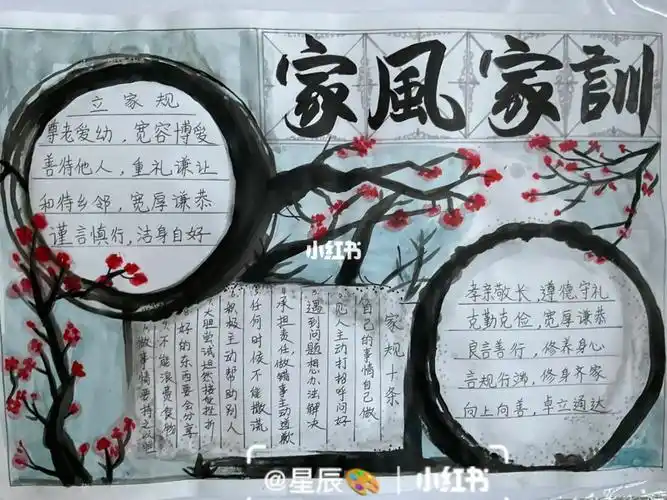 家風家訓
立家规
尊老爱幼，宽容博爱
善待他人，重礼谦让
和待乡邻，宽厚谦恭
谨言慎行，洁身自好
小红书
家规十条
自己的事情自己做
见人主动打招呼问好
遇到问题想办法解决
承担责任做错事主动道歉
任何时候不能撒谎
积极主动帮助别人
大胆尝试坦然接受挫折
好的东西要会分享
不能浪费食物
做事情要持之以恒
孝亲敬长，遵德守礼
克勤克俭，宽厚谦恭
良言善行，修养身心
言规行端，修身齐家
向上向善，卓立通达
@星辰🎨 | 小红书